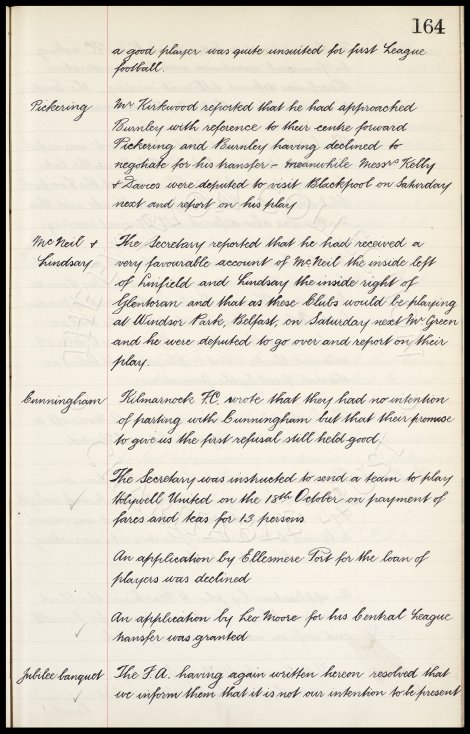 164
a good player was quite unsuited for first League
football.
Pickering Mr Kirkwood reported that he had approached
Burnley with reference to their centre forward
Pickering and Burnley having declined to
negotiate for his transfer - meanwhile Messrs Kelly
& Davies were deputed to visit Blackpool on Saturday
next and report on his play
McNeil & The Secretary reported that he had received a
Lindsay very favourable account of McNeil the inside left
of Linfield and Lindsay the inside right of
Glentoran and that as these Clubs would be playing
at Windsor Park, Belfast, on Saturday next Mr Green
and he were deputed to go over and report on their
play.
Cunningham Kilmarnock F.C. wrote that they had no intention
of parting with Cunningham but that their promise
to give us the first refusal still held good.
The Secretary was instructed to send a team to play
Holywell United on the 18th October on payment of
fares and teas for 13 persons
An application by Ellesmere Port for the loan of
players was declined
An application by Leo Moore for his Central League
transfer was granted
Jubilee banquet The F.A. having again written hereon resolved that
we inform them that it is not our intention to be present